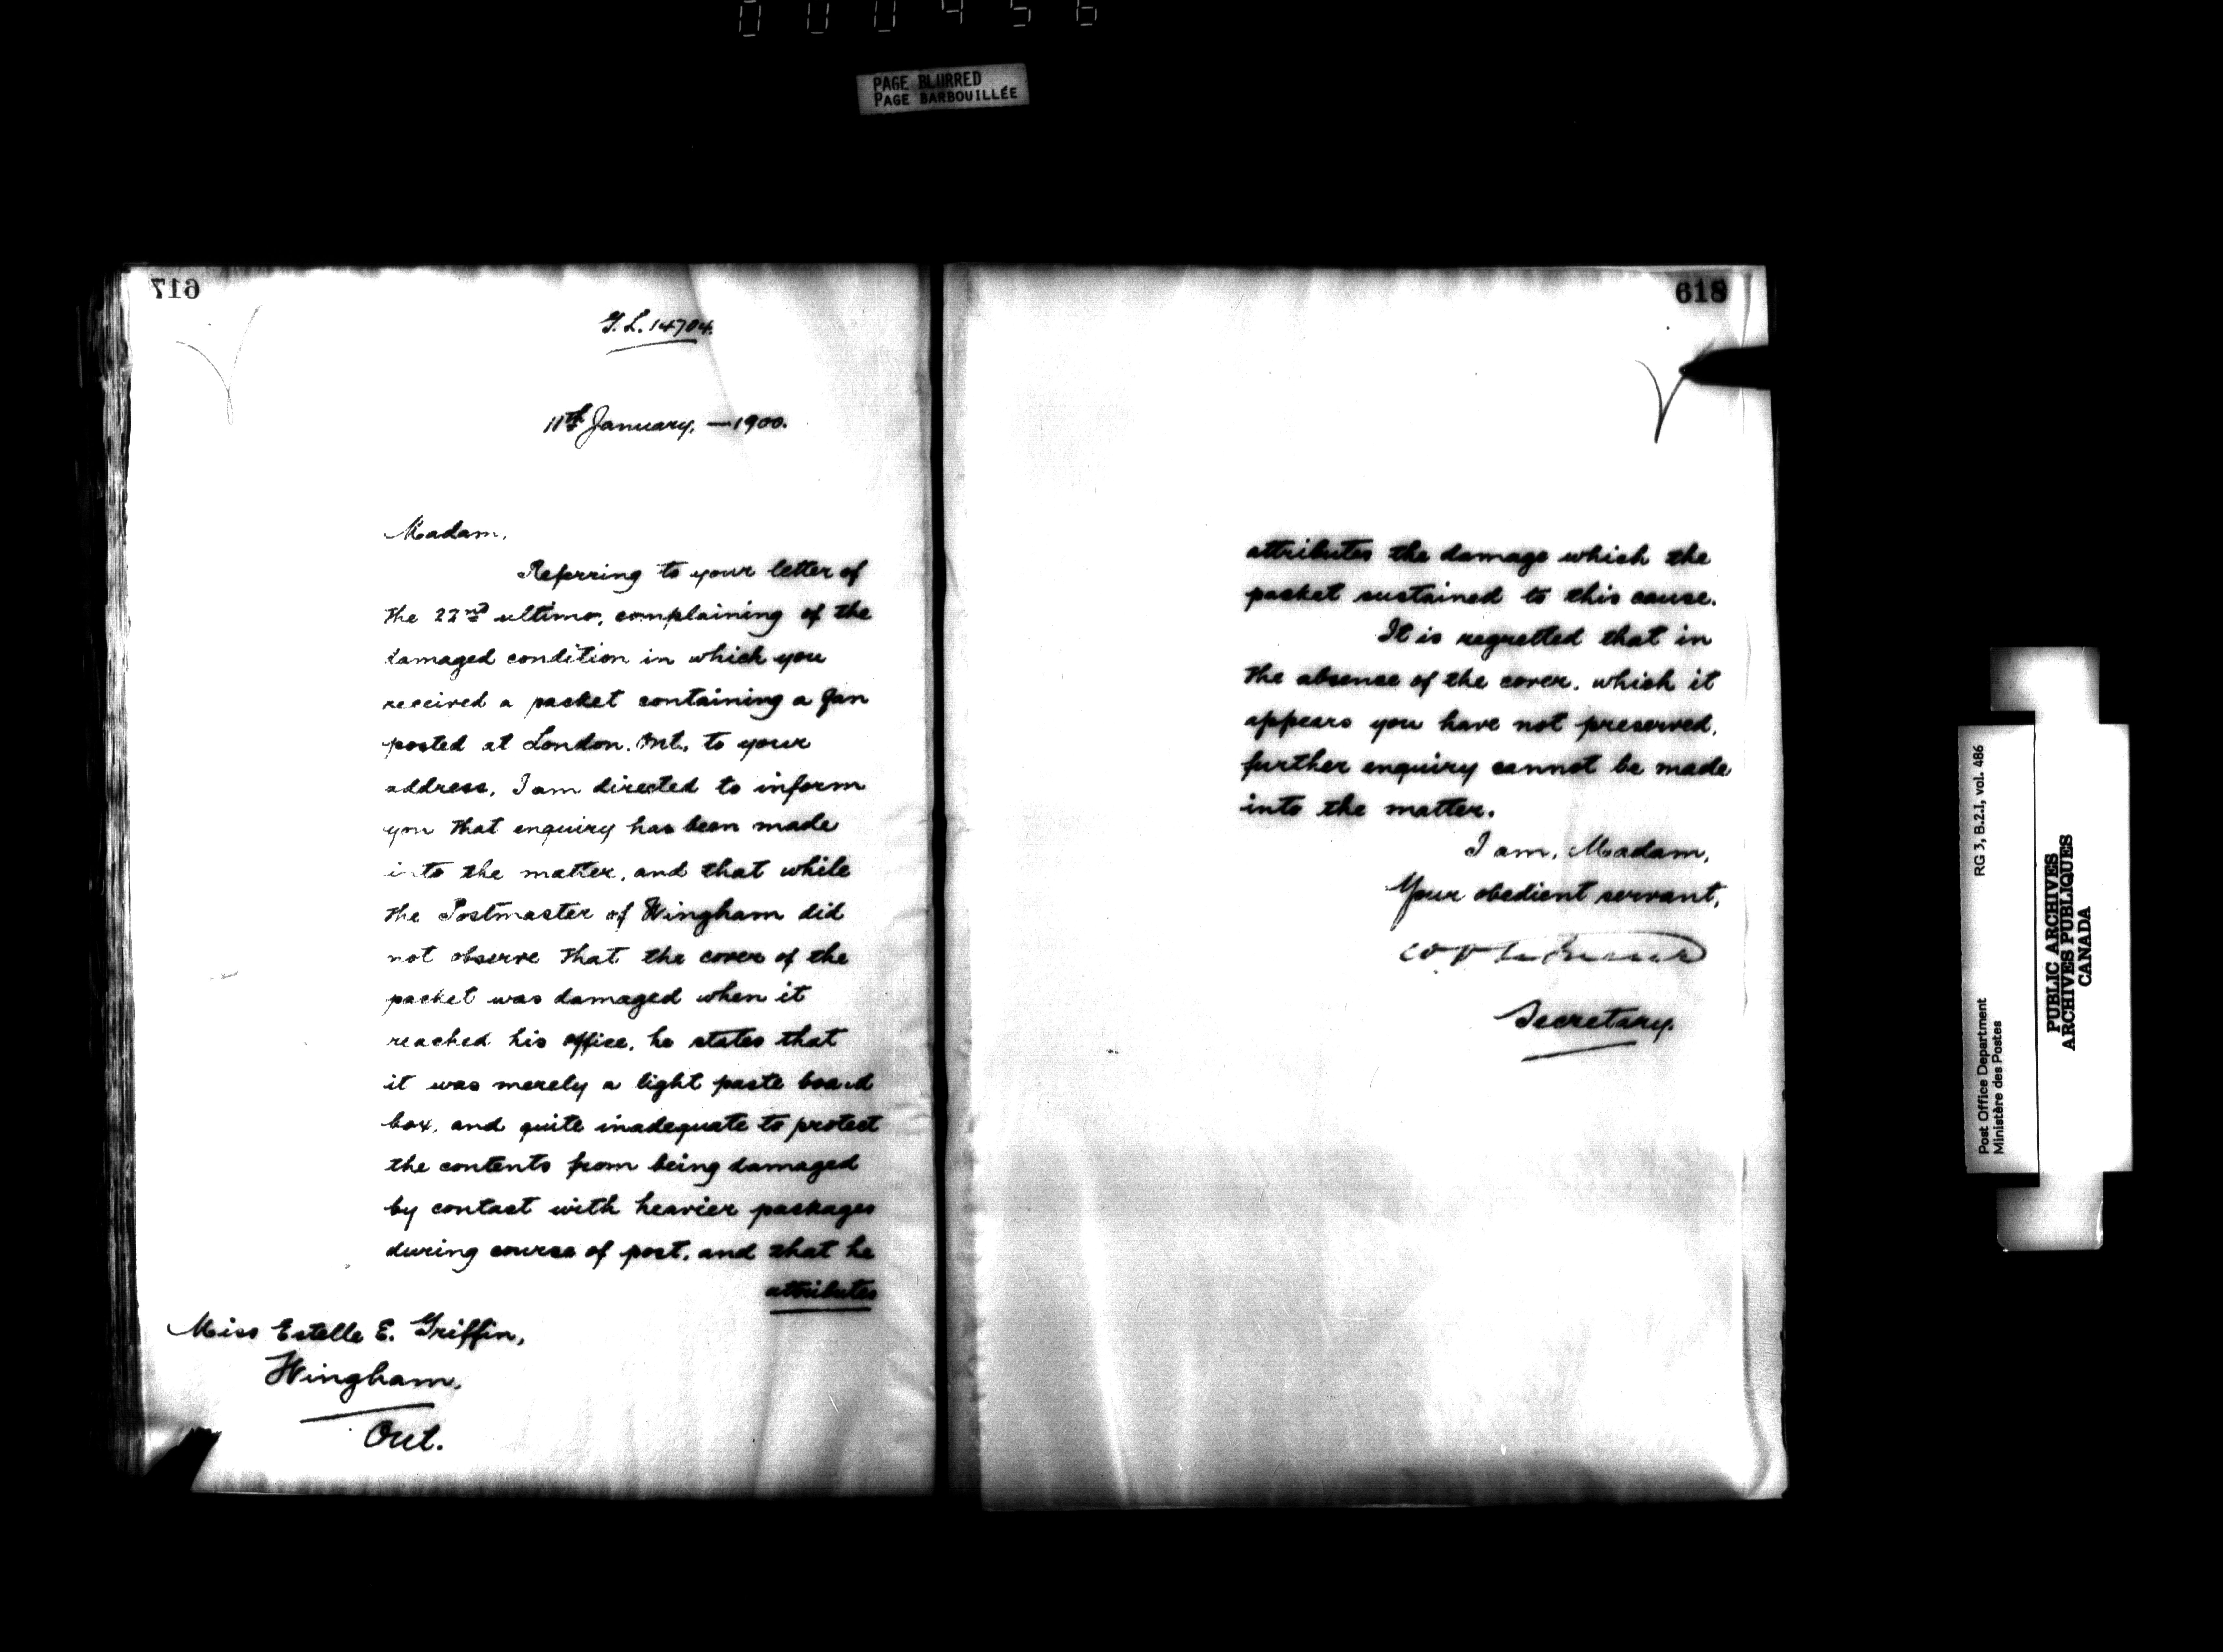 000456
PAGE BLURRED
PAGE BARBOUILLÉE
617
G.L. 14704.
11th January, — 1900.
Madam,
Referring to your letter of
the 22nd ultimo, complaining of the
damaged condition in which you
received a packet containing a fan
posted at London, Ont., to your
address, I am directed to inform
you that enquiry has been made
into the matter, and that while
the Postmaster of Wingham did
not observe that the cover of the
packet was damaged when it
reached his office, he states that
it was merely a light paste board
box, and quite inadequate to protect
the contents from being damaged
by contact with heavier packages
during course of post, and that he
attributes
Miss Estelle E. Griffin,
Wingham,
Ont.
618
attributes the damage which the
packet sustained to this cause.
It is regretted that in
the absence of the cover, which it
appears you have not preserved,
further enquiry cannot be made
into the matter.
I am, Madam,
Your obedient servant,
Secretary.
Post Office Department
Ministère des Postes
RG 3, B.2.I, vol. 486
PUBLIC ARCHIVES
ARCHIVES PUBLIQUES
CANADA